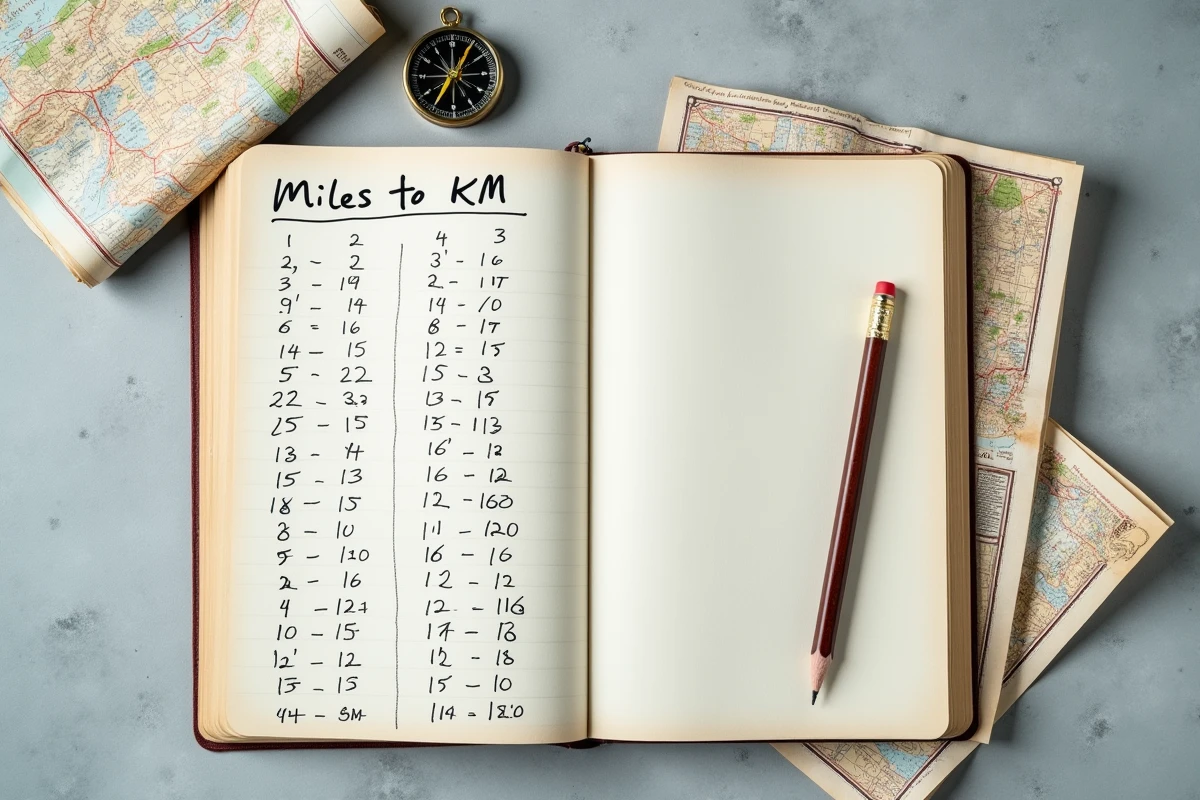 Miles to KM
1 2
2, - 2
3 - 19
9' - 14
6 = 16
14 - 15
5 - 22
22 -
25 - 15
13 -
15 - 13
18 - 15
8 - 10
- 110
2 - 16
4 -
10 - 15
12' - 12
15 - 15
44 -
4 3
3' - 16
2 -
14 - 10
8 - 17
12 = 15
15 - 3
13 - 15
15 - 113
16' - 12
16 - 12
12 - 160
- 120
16 - 16
12 - 12
12 - 116
17 -
12 - 18
15 - 10
114 -